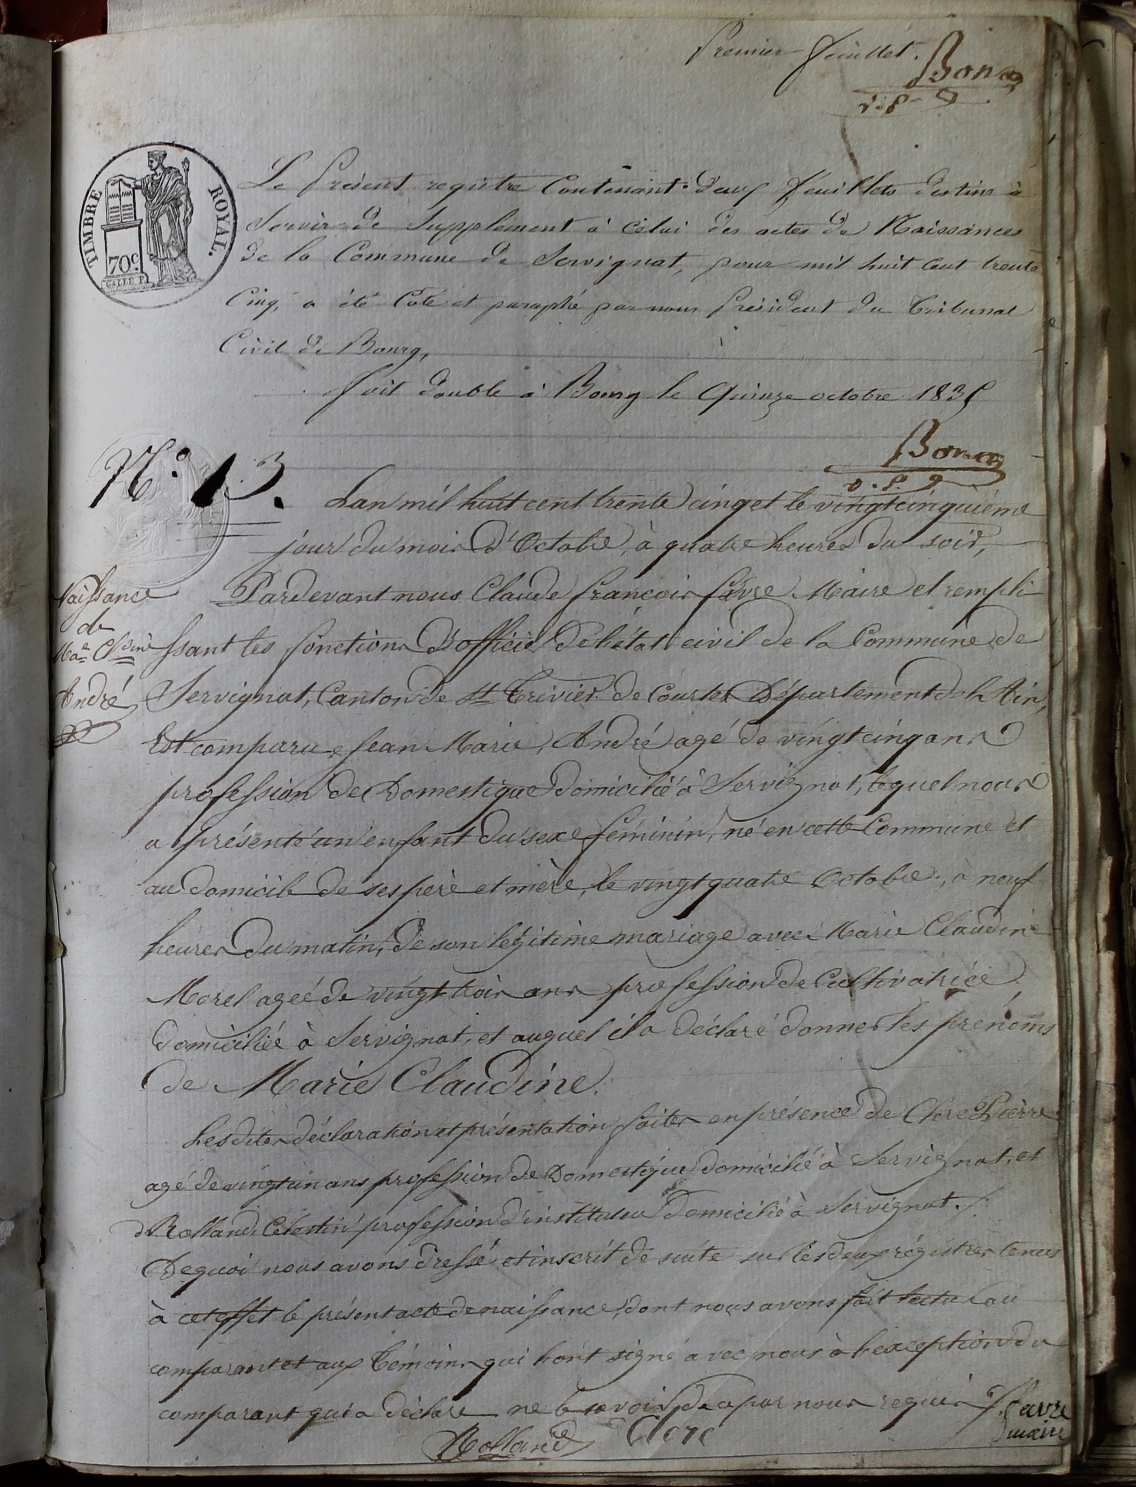 Premier feuillet.
Bon
v. p.
TIMBRE ROYAL.
70c
Le Présent registre Contenant deux feuillets destiné à
Servir de Supplément à Celui des actes de Naissances
de la Commune de Servignat, pour mil huit cent trente
Cinq, a été Coté et paraphé par nous Président du Tribunal
Civil de Bourg,
Fait double à Bourg le Quinze octobre 1835
v. p.
N.o 13.
Lan mil huit cent trente cinq et le vingtcinquième
jour du mois d'Octobre, à quatre heures du soir,
Naissance
de
André
Pardevant nous Claude françois favre Maire et rempli
ssant les fonctions D'officié De létat civil de la Commune de
Servignat, Canton de St Trivier de Courtes Département de l'Ain,
Est comparu, Jean Marie, André agé de vingtcinq ans
profession de Domestique domicilié à Servignat, lequel nous
a présenté un enfant du sexe féminin, né en cette Commune et
au domicile de ses père et mère, le vingtquatre Octobre, à neuf
heures Du matin, de son légitime mariage avec Marie Claudine
Morel ageé de vingt trois ans profession de Cultivatrice
Domiciliée à Servignat, et auquel il a déclaré donner les prénoms
de Marie Claudine.
Lesdites déclaration et présentation faites en présence de Clerc Pierre
agé de vingtun ans profession de Domestique domicilié à Servignat, et
d Rolland Célestin profession D'instituteur Domicilié à Servignat.
De quoi nous avons dressé et inscrit de suite sur les deux régistres tenus
à cet effet le présent acte de naissance, dont nous avons fait lecture au
comparant et aux témoins qui l'ont signé avec nous à l'exception du
comparant qui a déclaré ne le savoir, de ce par nous requis
favre
maire
Rolland Clerc